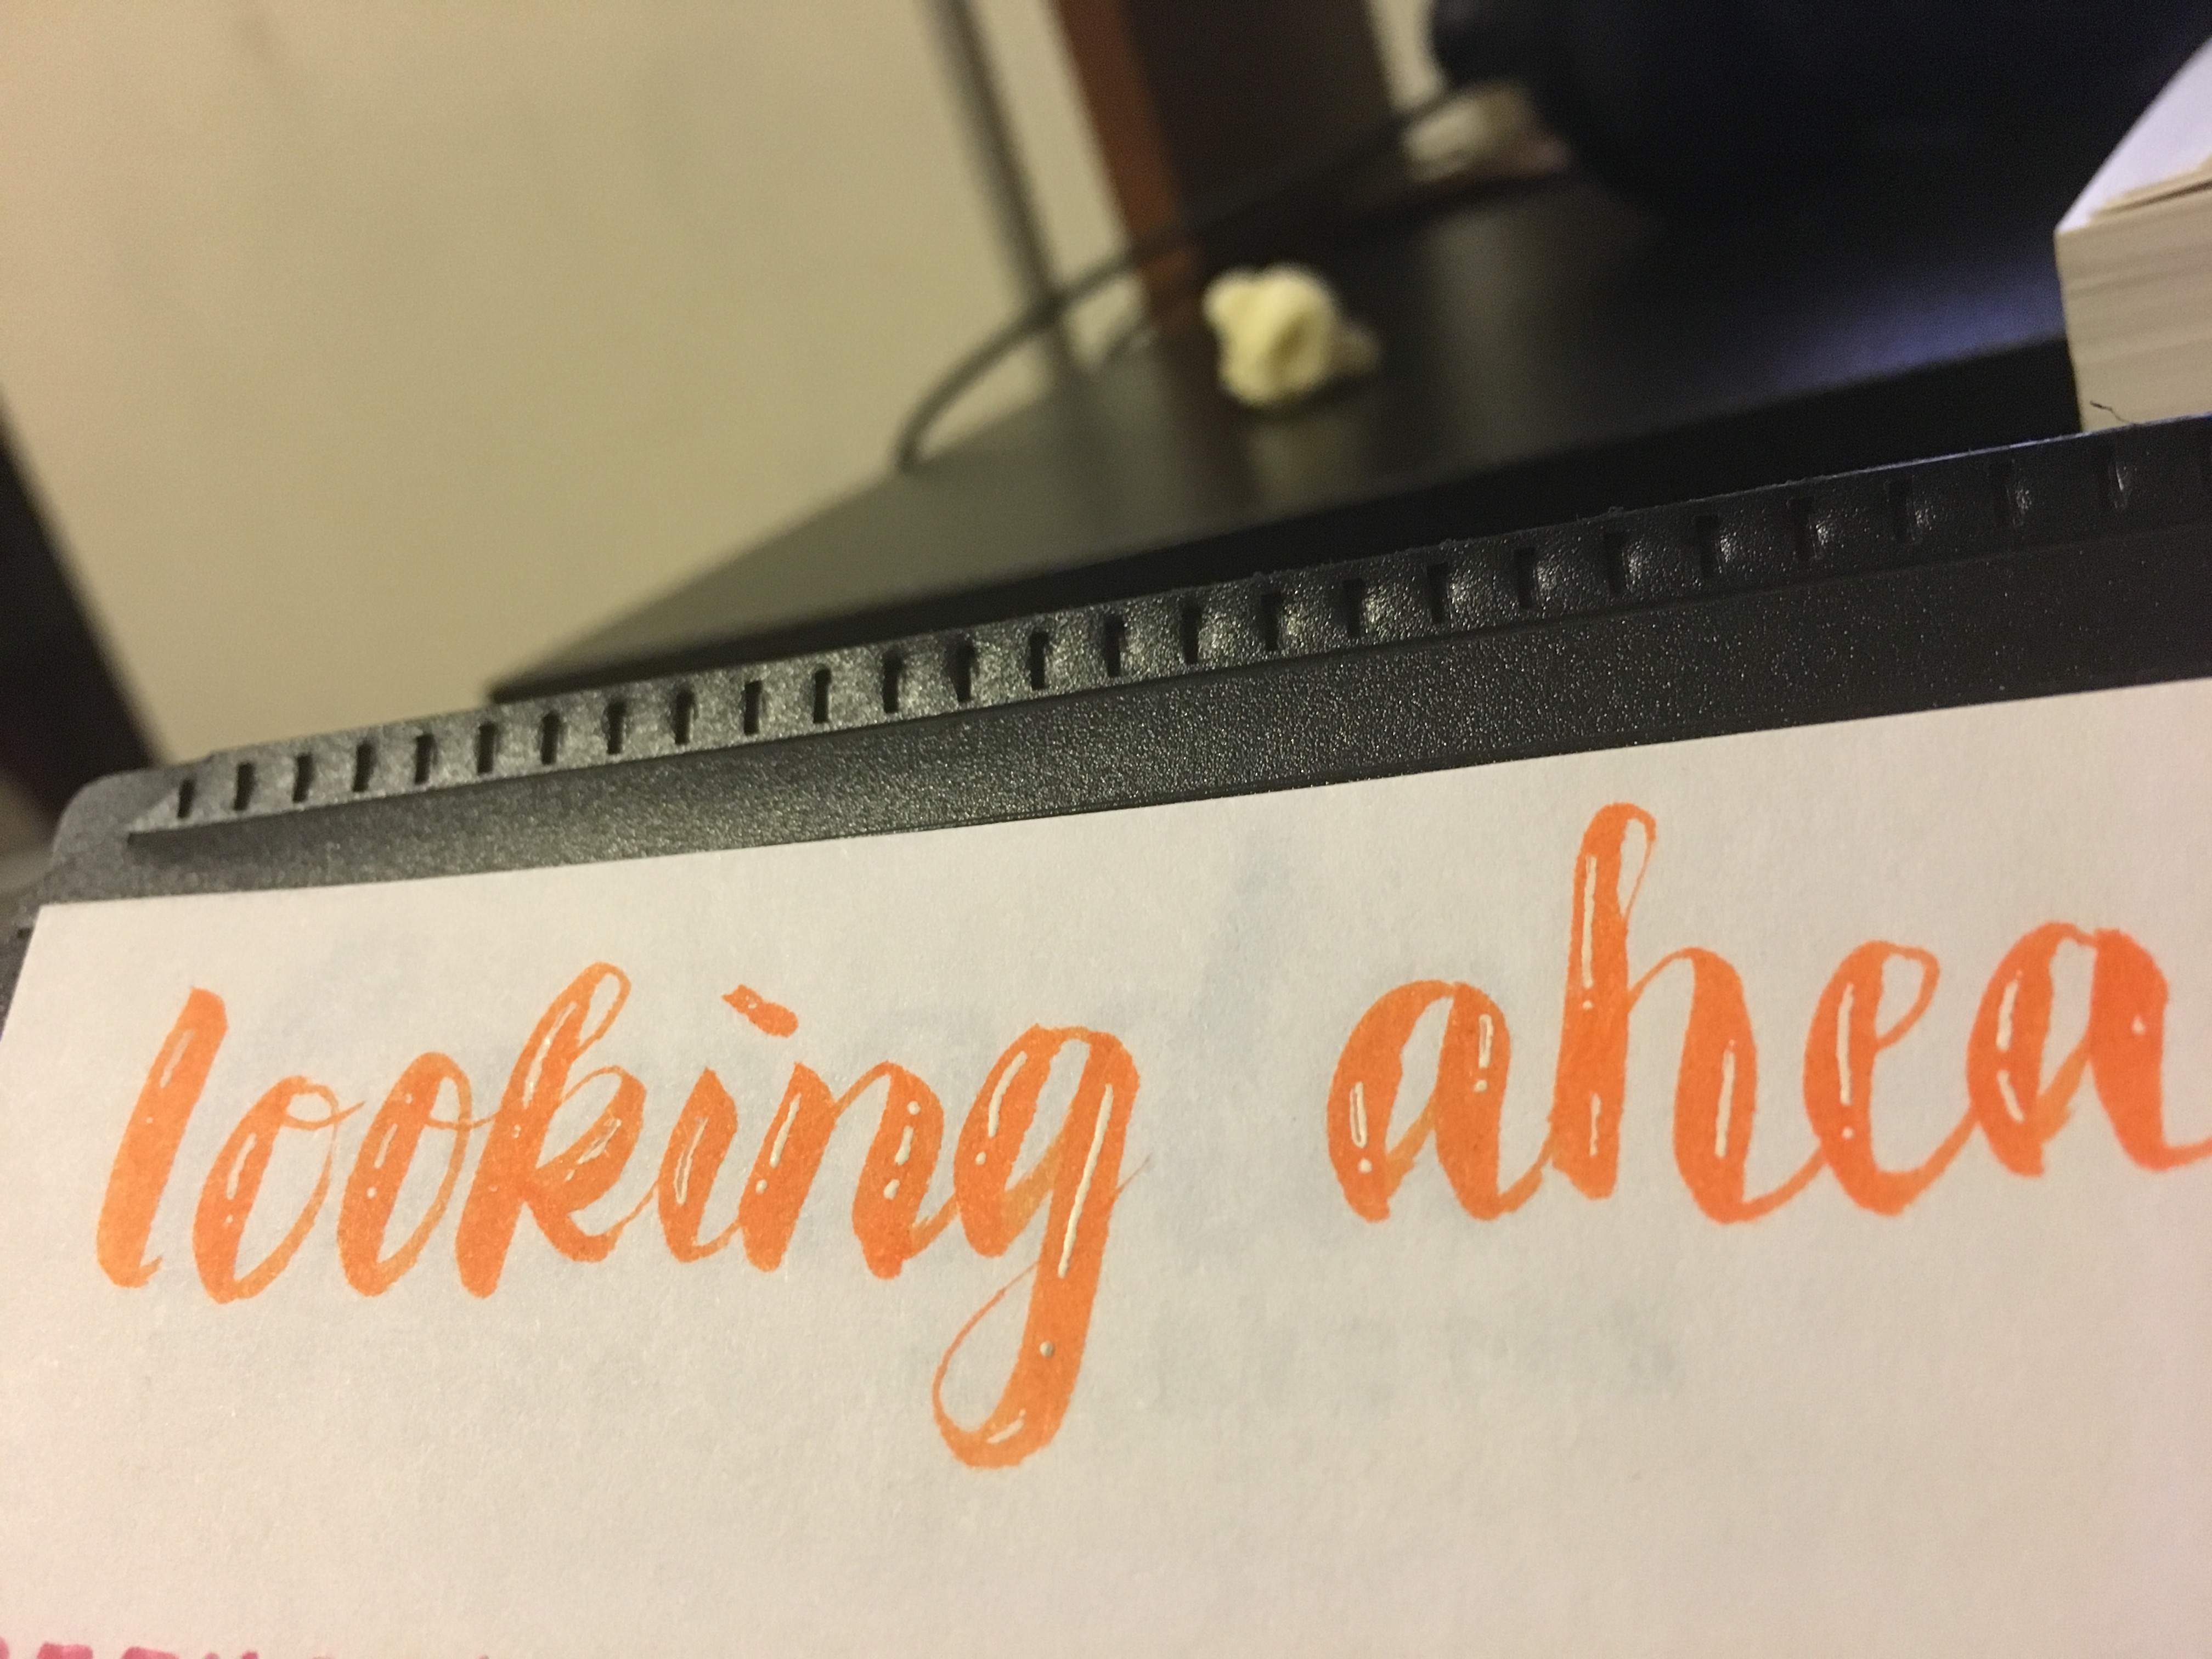 looking ahea